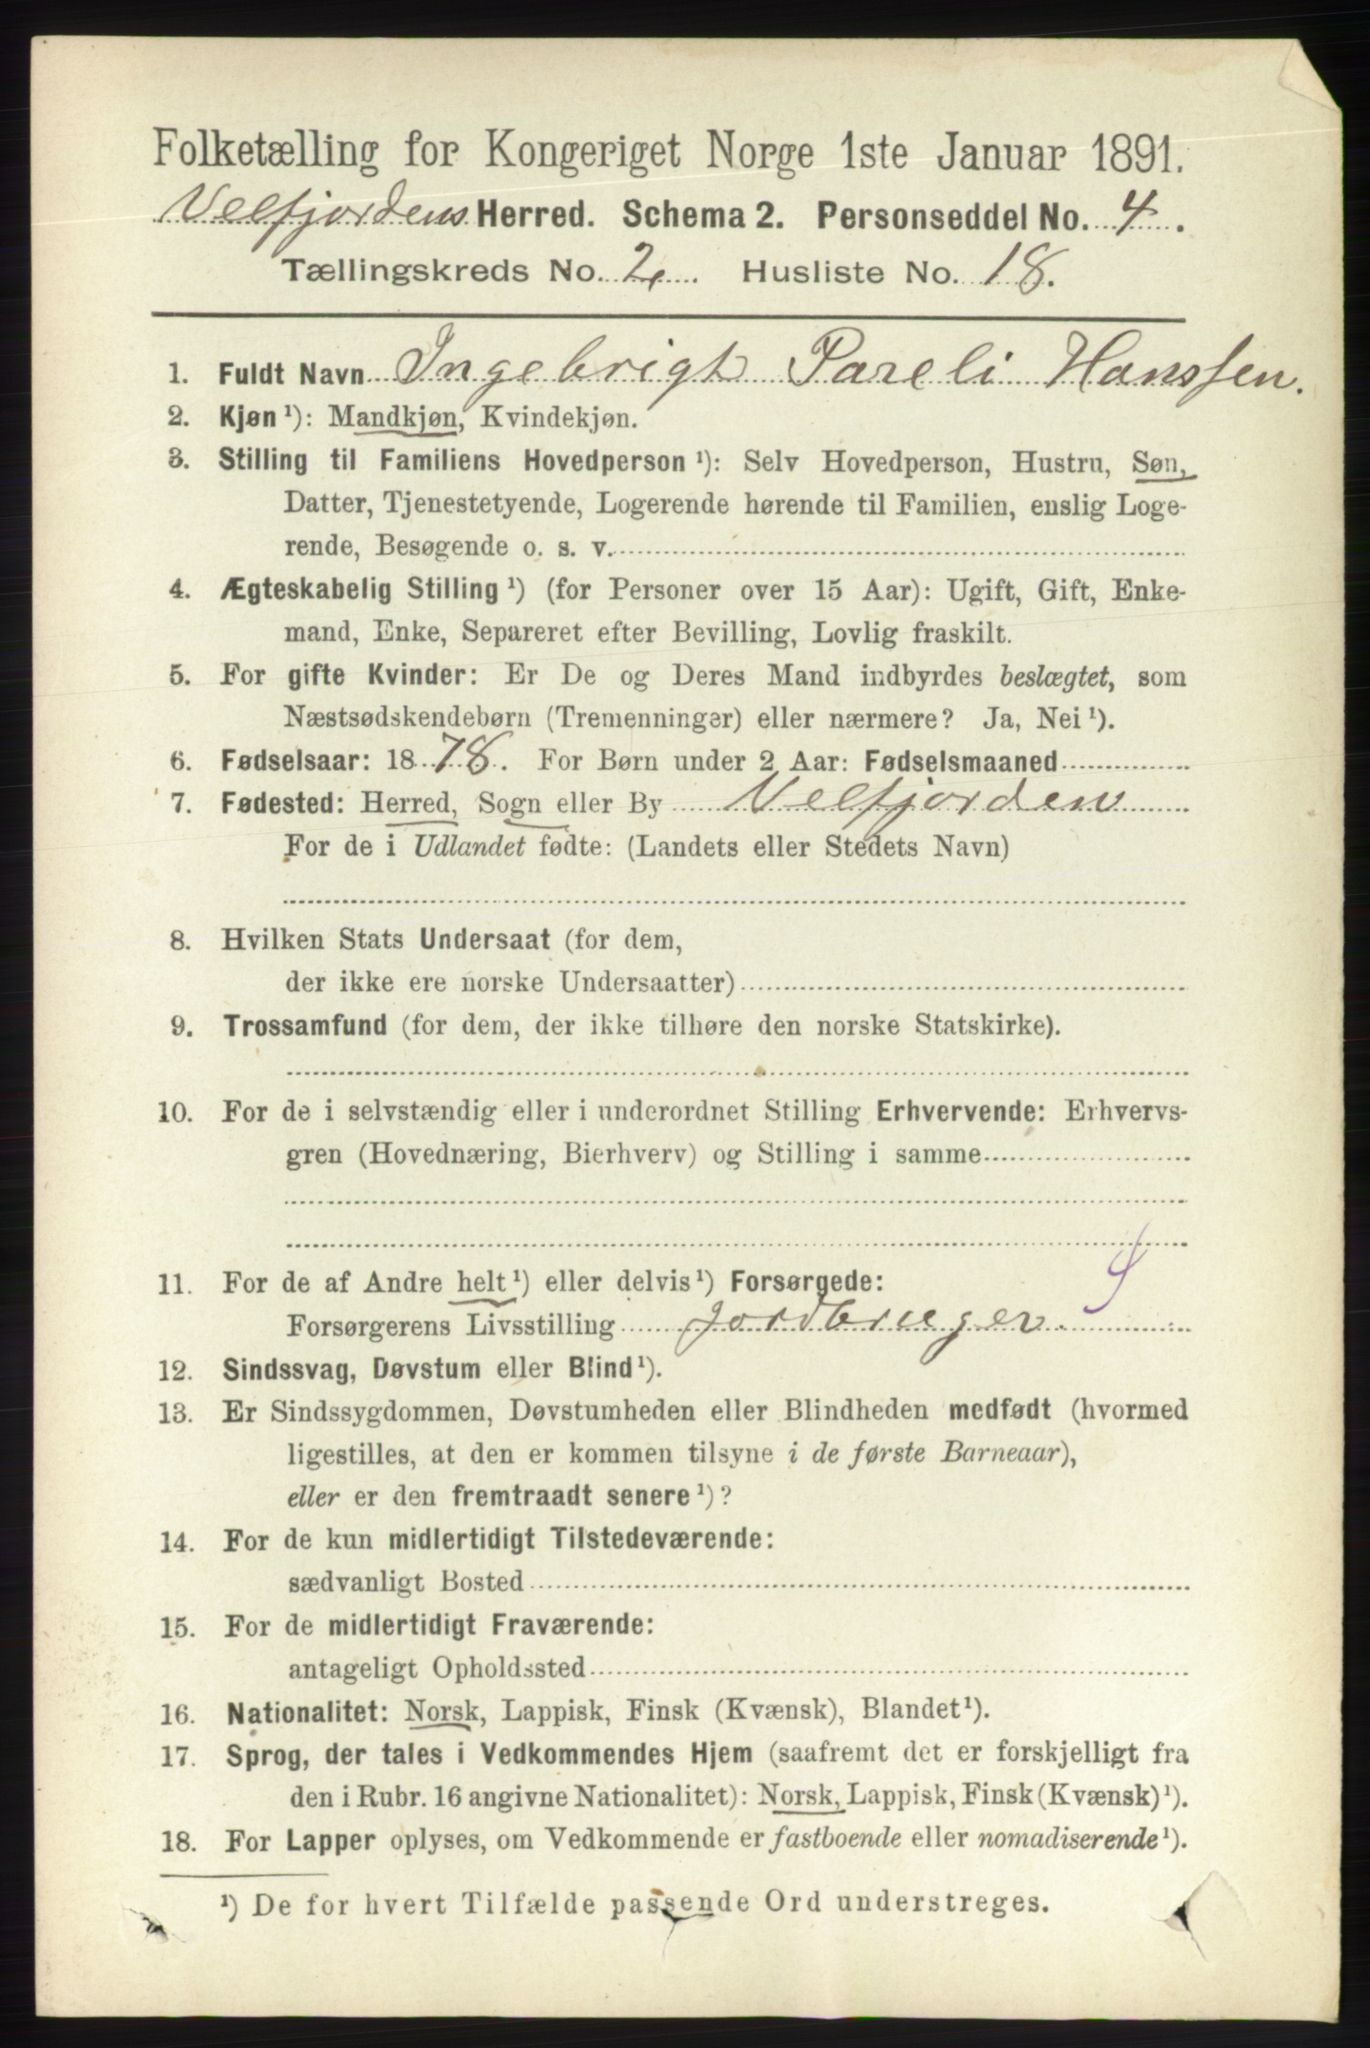 Folketælling for Kongeriget Norge 1ste Januar 1891.
Velfjordens Herred. Schema 2. Personseddel No. 4.
Tællingskreds No. 2. Husliste No. 18.
1. Fuldt Navn Ingebrigt Pareli Hanssen.
2. Kjøn ¹): Mandkjøn, Kvindekjøn.
3. Stilling til Familiens Hovedperson ¹): Selv Hovedperson, Hustru, Søn,
Datter, Tjenestetyende, Logerende hørende til Familien, enslig Loge-
rende, Besøgende o. s. v.
4. Ægteskabelig Stilling ¹) (for Personer over 15 Aar): Ugift, Gift, Enke-
mand, Enke, Separeret efter Bevilling, Lovlig fraskilt.
5. For gifte Kvinder: Er De og Deres Mand indbyrdes beslægtet, som
Næstsødskendebørn (Tremenninger) eller nærmere? Ja, Nei ¹).
6. Fødselsaar: 1878. For Børn under 2 Aar: Fødselsmaaned
7. Fødested: Herred, Sogn eller By Velfjorden
For de i Udlandet fødte: (Landets eller Stedets Navn)
8. Hvilken Stats Undersaat (for dem,
der ikke ere norske Undersaatter)
9. Trossamfund (for dem, der ikke tilhøre den norske Statskirke).
10. For de i selvstændig eller i underordnet Stilling Erhvervende: Erhvervs-
gren (Hovednæring, Bierhverv) og Stilling i samme
11. For de af Andre helt ¹) eller delvis ¹) Forsørgede:
Forsørgerens Livsstilling Jordbruger.
12. Sindssvag, Døvstum eller Blind ¹).
13. Er Sindssygdommen, Døvstumheden eller Blindheden medfødt (hvormed
ligestilles, at den er kommen tilsyne i de første Barneaar),
eller er den fremtraadt senere ¹)?
14. For de kun midlertidigt Tilstedeværende:
sædvanligt Bosted
15. For de midlertidigt Fraværende:
antageligt Opholdssted
16. Nationalitet: Norsk, Lappisk, Finsk (Kvænsk), Blandet ¹).
17. Sprog, der tales i Vedkommendes Hjem (saafremt det er forskjelligt fra
den i Rubr. 16 angivne Nationalitet): Norsk, Lappisk, Finsk (Kvænsk) ¹).
18. For Lapper oplyses, om Vedkommende er fastboende eller nomadiserende ¹).
¹) De for hvert Tilfælde passende Ord understreges.